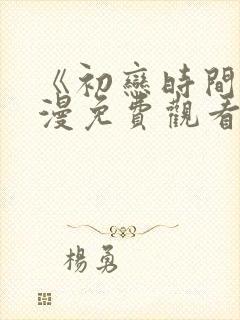 《初戀時間
漫免費觀看
楊勇